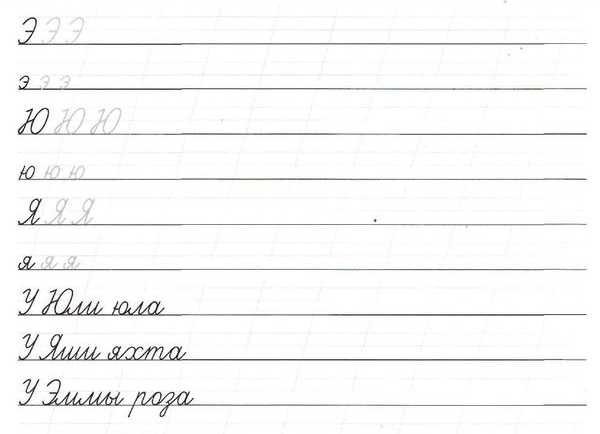 Э Э Э
э э э
Ю Ю Ю
ю ю ю
Я Я Я
я я я
У Юли юла
У Яши яхта
У Эммы роза